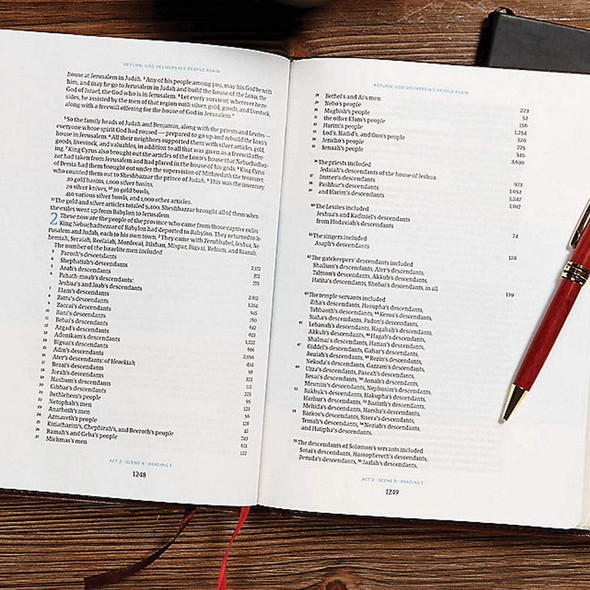 RETURN: GOD DELIVERS HIS PEOPLE AGAIN
house at Jerusalem in Judah. ³ Any of his people among you, may his God be with
him, and may he go to Jerusalem in Judah and build the house of the LORD, the
God of Israel, the God who is in Jerusalem. ⁴ Let every survivor, wherever he re-
sides, be assisted by the men of that region with silver, gold, goods, and livestock,
along with a freewill offering for the house of God in Jerusalem."
⁵ So the family heads of Judah and Benjamin, along with the priests and Levites —
everyone whose spirit God had roused — prepared to go up and rebuild the LORD's
house in Jerusalem. ⁶ All their neighbors supported them with silver articles, gold,
goods, livestock, and valuables, in addition to all that was given as a freewill offer-
ing. ⁷ King Cyrus also brought out the articles of the LORD's house that Nebuchadnez-
zar had taken from Jerusalem and had placed in the house of his gods. ⁸ King Cyrus
of Persia had them brought out under the supervision of Mithredath the treasurer,
who counted them out to Sheshbazzar the prince of Judah. ⁹ This was the inventory:
30 gold basins, 1,000 silver basins,
29 silver knives, ¹⁰ 30 gold bowls,
410 various silver bowls, and 1,000 other articles.
¹¹ The gold and silver articles totaled 5,400. Sheshbazzar brought all of them when
the exiles went up from Babylon to Jerusalem.
2 These now are the people of the province who came from those captive exiles
King Nebuchadnezzar of Babylon had deported to Babylon. They returned to Je-
rusalem and Judah, each to his own town. ² They came with Zerubbabel, Jeshua, Ne-
hemiah, Seraiah, Reelaiah, Mordecai, Bilshan, Mispar, Bigvai, Rehum, and Baanah.
The number of the Israelite men included
³ Parosh's descendants 2,172
⁴ Shephatiah's descendants 372
⁵ Arah's descendants 775
⁶ Pahath-moab's descendants:
Jeshua's and Joab's descendants 2,812
⁷ Elam's descendants 1,254
⁸ Zattu's descendants 945
⁹ Zaccai's descendants 760
¹⁰ Bani's descendants 642
¹¹ Bebai's descendants 623
¹² Azgad's descendants 1,222
¹³ Adonikam's descendants 666
¹⁴ Bigvai's descendants 2,056
¹⁵ Adin's descendants 454
¹⁶ Ater's descendants: of Hezekiah 98
¹⁷ Bezai's descendants 323
¹⁸ Jorah's descendants 112
¹⁹ Hashum's descendants 223
²⁰ Gibbar's descendants 95
²¹ Bethlehem's people 123
²² Netophah's men 56
²³ Anathoth's men 128
²⁴ Azmaveth's people 42
²⁵ Kiriatharim's, Chephirah's, and Beeroth's people 743
²⁶ Ramah's and Geba's people 621
²⁷ Michmas's men 122
ACT 2 · SCENE 9 · READING 1
1248
RETURN: GOD DELIVERS HIS PEOPLE AGAIN
²⁸ Bethel's and Ai's men 223
²⁹ Nebo's people 52
³⁰ Magbish's people 156
³¹ the other Elam's people 1,254
³² Harim's people 320
³³ Lod's, Hadid's, and Ono's people 725
³⁴ Jericho's people 345
³⁵ Senaah's people 3,630
³⁶ The priests included
Jedaiah's descendants of the house of Jeshua 973
³⁷ Immer's descendants 1,052
³⁸ Pashhur's descendants 1,247
³⁹ and Harim's descendants 1,017
⁴⁰ The Levites included
Jeshua's and Kadmiel's descendants
from Hodaviah's descendants 74
⁴¹ The singers included
Asaph's descendants 128
⁴² The gatekeepers' descendants included
Shallum's descendants, Ater's descendants,
Talmon's descendants, Akkub's descendants,
Hatita's descendants, Shobai's descendants, in all 139
⁴³ The temple servants included
Ziha's descendants, Hasupha's descendants,
Tabbaoth's descendants, ⁴⁴ Keros's descendants,
Siaha's descendants, Padon's descendants,
⁴⁵ Lebanah's descendants, Hagabah's descendants,
Akkub's descendants, ⁴⁶ Hagab's descendants,
Shalmai's descendants, Hanan's descendants,
⁴⁷ Giddel's descendants, Gahar's descendants,
Reaiah's descendants, ⁴⁸ Rezin's descendants,
Nekoda's descendants, Gazzam's descendants,
⁴⁹ Uzza's descendants, Paseah's descendants,
Besai's descendants, ⁵⁰ Asnah's descendants,
Meunim's descendants, Nephusim's descendants,
⁵¹ Bakbuk's descendants, Hakupha's descendants,
Harhur's descendants, ⁵² Bazluth's descendants,
Mehida's descendants, Harsha's descendants,
⁵³ Barkos's descendants, Sisera's descendants,
Temah's descendants, ⁵⁴ Neziah's descendants,
and Hatipha's descendants.
⁵⁵ The descendants of Solomon's servants included
Sotai's descendants, Hassophereth's descendants,
Peruda's descendants, ⁵⁶ Jaalah's descendants,
ACT 2 · SCENE 9 · READING 1
1249